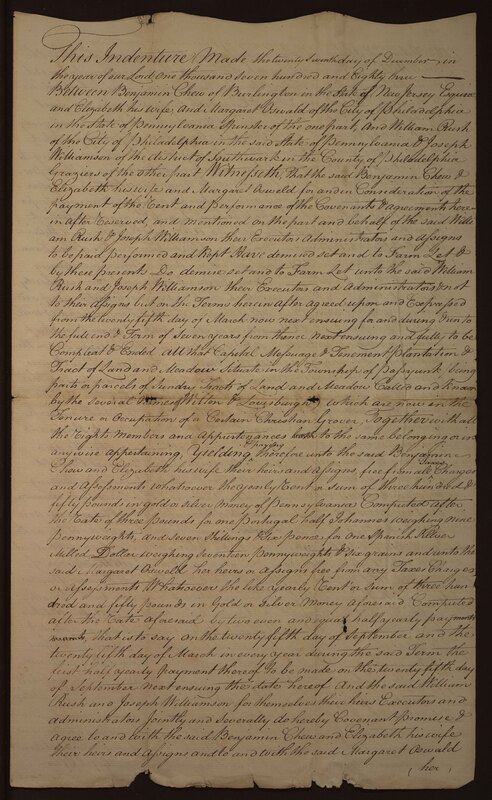 This Indenture Made the twenty seventh day of December in
the year of our Lord One thousand seven hundred and Eighty three
Between Benjamin Chew of Burlington in the State of New Jersey Esquire
and Elizabeth his wife, And Margaret Oswald of the City of Philadelphia
in the State of Pennsylvania Spinster of the one part, And William Rush
of the City of Philadelphia in the said State of Pennsylvania & Joseph
Williamson of the district of Southwark in the County of Philadelphia
Graziers of the other part Witnesseth, that the said Benjamin Chew &
Elizabeth his wife and Margaret Oswald for and in Consideration of the
payment of the Rent and Performance of the Covenants & agreements here=
in after Reserved, and mentioned on the part and behalf of the said Willi
am Rush & Joseph Williamson their Executors Administrators and Assigns
to be paid performed and Kept Have demised set and to Farm Let &
by these presents Do demise set and to Farm Let unto the said William
Rush and Joseph Williamson their Executors and Administrators & not
to their Assigns but on the Terms herein after agreed upon and Expressed
from the twenty fifth day of March now next ensuing for and during & unto
the full end & Term of Seven years from thence next ensuing and fully to be
Compleat & Ended All that Capital Messuage & Tenement Plantation &
Tract of Land and Meadow Situate in the Township of Passyunk being
part or parcels of Sundry Tracts of Land and Meadow Called and Known
by the several Names of Wilton & Louisburgh which are now in the
Tenure or Occupation of a Certain Christian Grover, Together with all
the Rights Members and Appurtenances to the same belonging or in
any wise appertaining Yielding therefore unto the said Benjamin
Paying Taxes
Chew and Elizabeth his wife their heirs and Assigns, free from all Charges
and Assessments whatsoever the yearly Rent or Sum of three hundred &
fifty pounds in gold or silver Money of Pennsylvania Computed after
the Rate of three Pounds for one Portugal half Johannes weighing nine
Pennyweights, and Seven Shillings & Six pence for one Spanish Silver
Milled Dollar weighing Seventeen Pennyweights & Six grains and unto the
said Margaret Oswald her heirs or Assigns free from any Taxes Charges
or Assessments Whatsoever the like yearly Rent or Sum of three hun
dred and fifty pounds in Gold or Silver Money aforesaid Computed
after the Rate aforesaid by two even and equal half yearly payments
that is to say on the twenty fifth day of September and the
twenty fifth day of March in every year during the said Term the
first half yearly payment thereof to be made on the twenty fifth day
of September next ensuing the date hereof And the said William
Rush and Joseph Williamson for themselves their heirs Executors and
administrators jointly and Severally do hereby Covenant Promise &
agree to and with the said Benjamin Chew and Elizabeth his wife
their heirs and Assigns and to and with the said Margaret Oswald
( her )